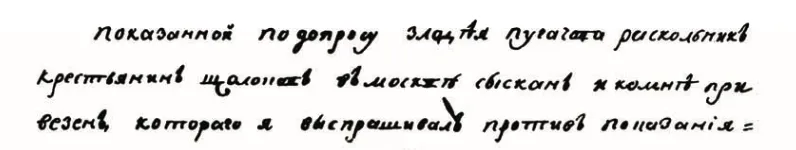 показанной по допросу злодѣя пугачева раскольникъ
крестьянинъ щолоковъ въ москвѣ сысканъ и комнѣ при
везенъ, котораго я выспрашивалъ противъ показанiя =